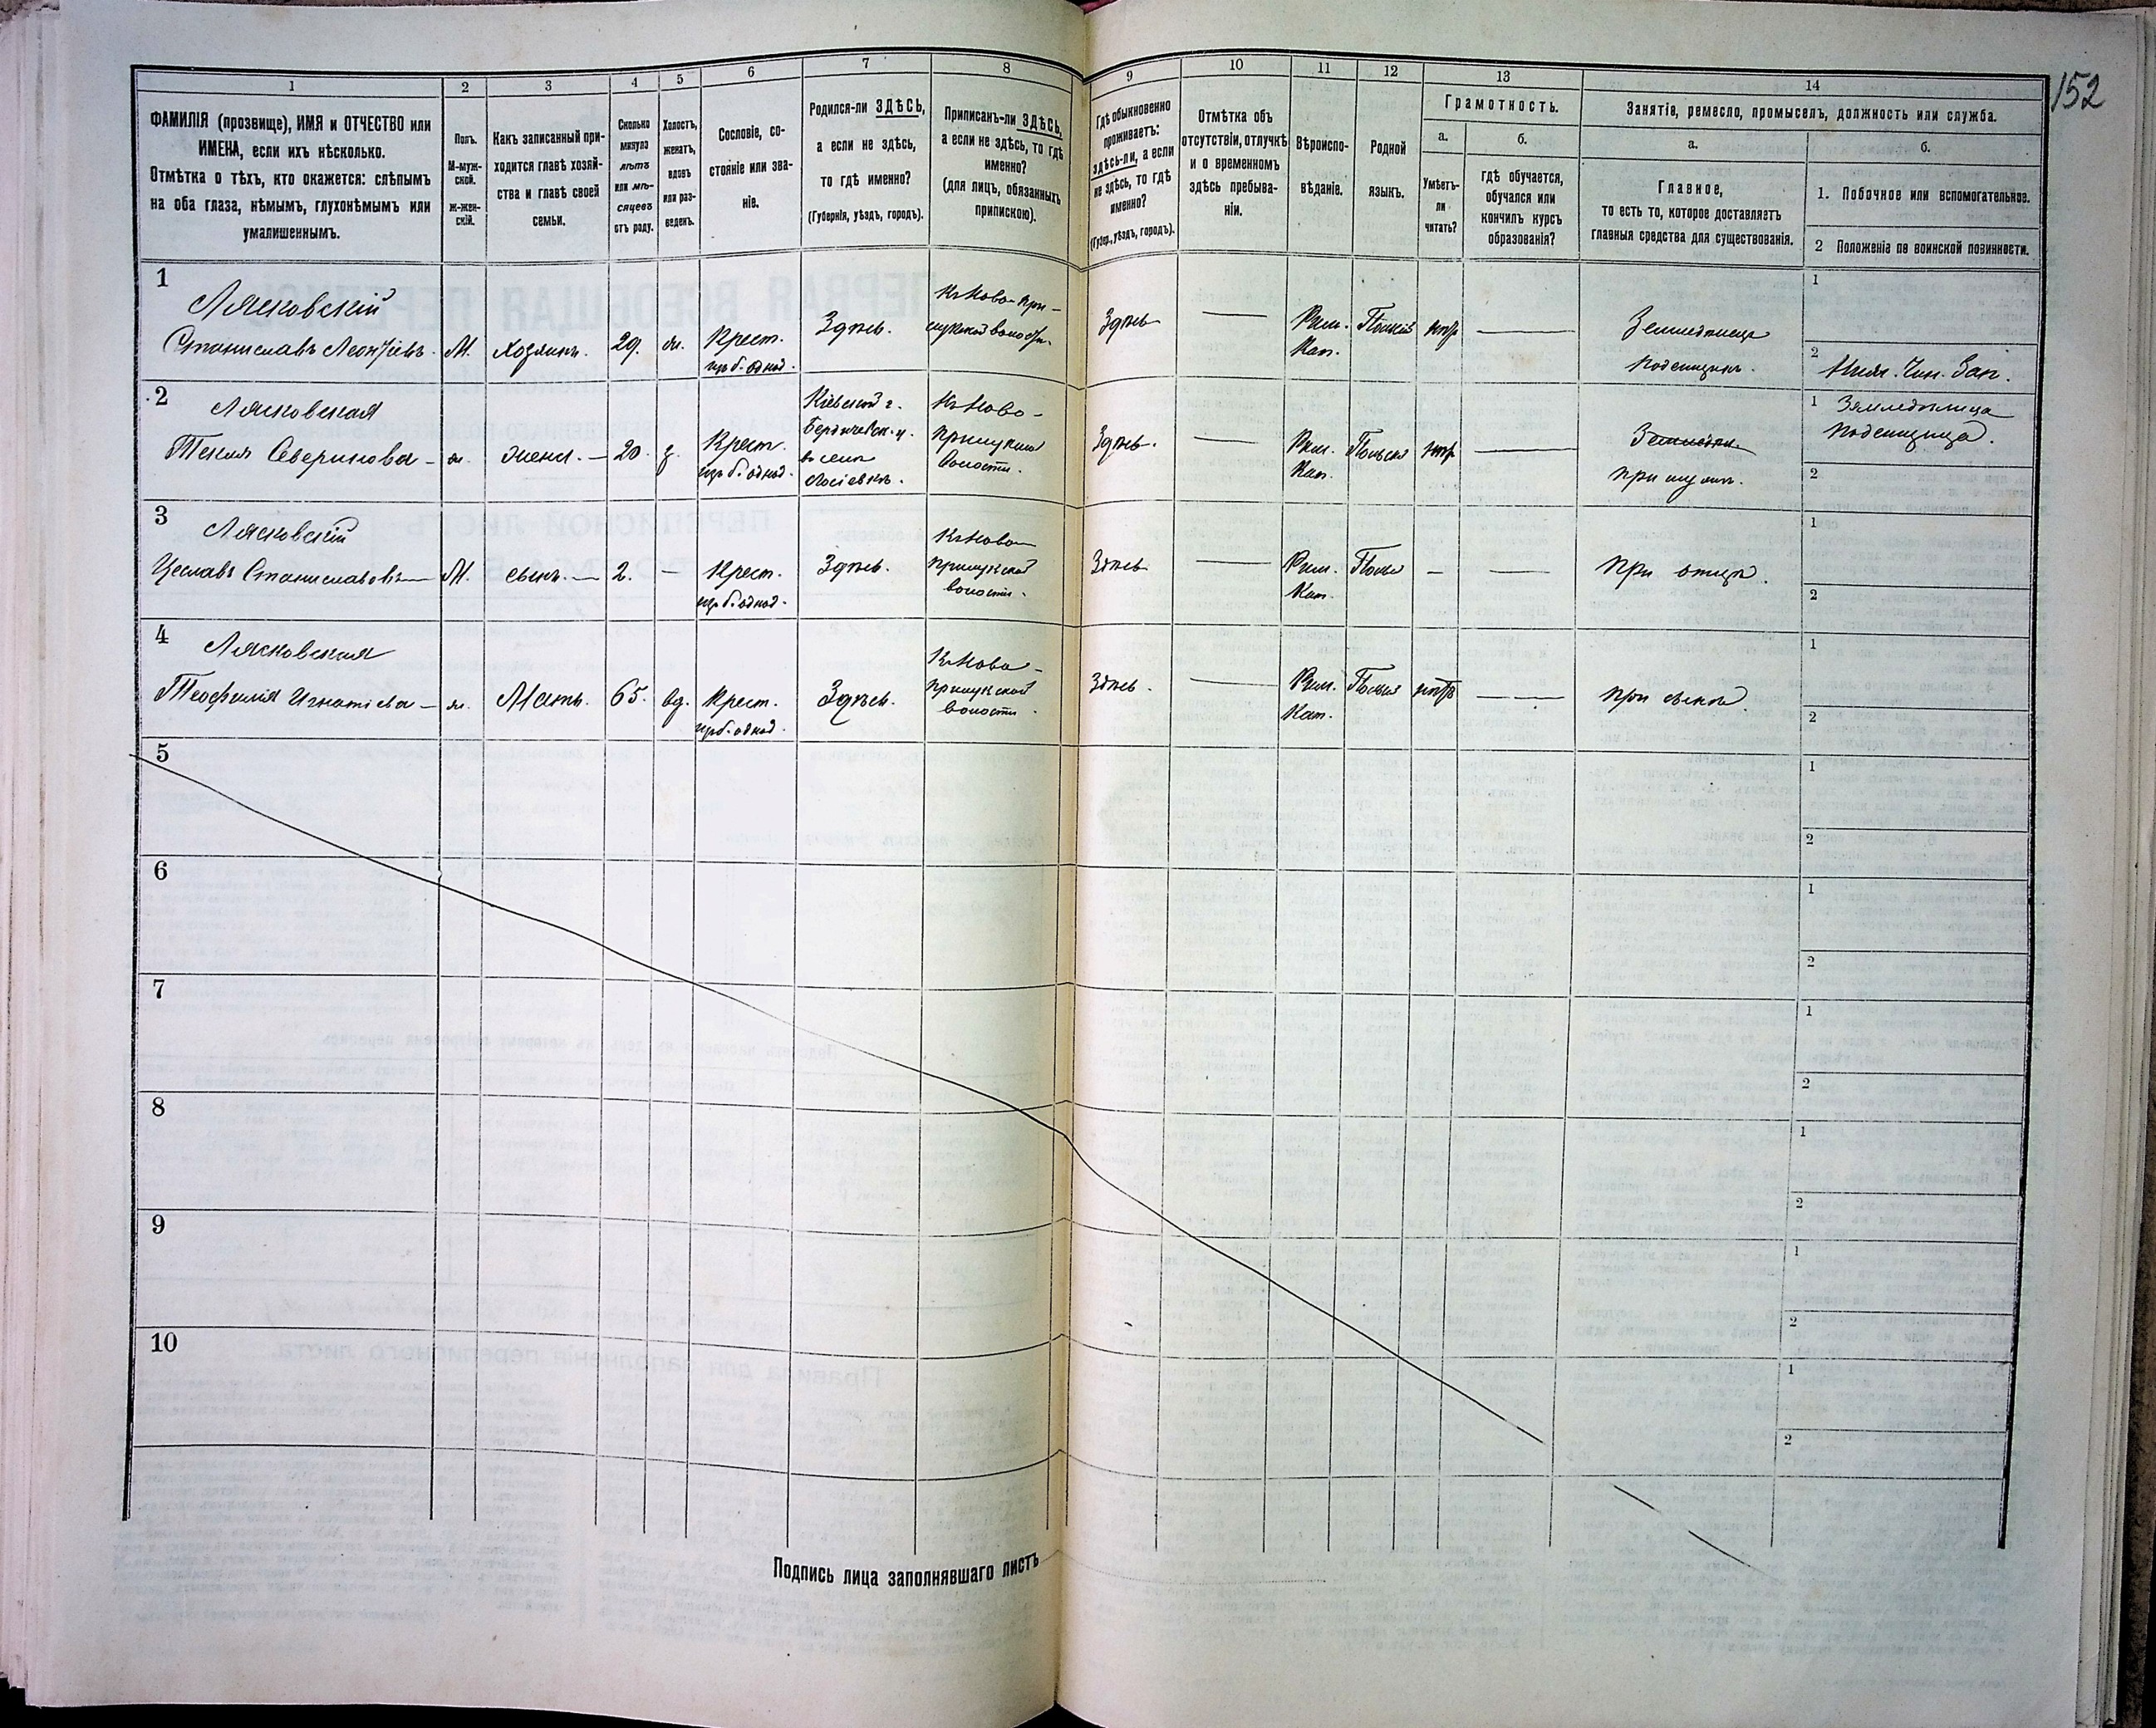 152
1
2
3
4
5
6
7
8
9
10
11
12
13
14
ФАМИЛІЯ (прозвище), ИМЯ и ОТЧЕСТВО или
ИМЕНА, если ихъ нѣсколько.
Отмѣтка о тѣхъ, кто окажется: слѣпымъ
на оба глаза, нѣмымъ, глухонѣмымъ или
умалишеннымъ.
Полъ.
М-муж-
ской.
Ж-жен-
скій.
Какъ записанный при-
ходится главѣ хозяй-
ства и главѣ своей
семьи.
Сколько
минуло
лѣтъ
или мѣ-
сяцевъ
отъ роду.
Холостъ,
женатъ,
вдовъ
или раз-
веденъ.
Сословіе, со-
стояніе или зва-
ніе.
Родился-ли ЗДѢСЬ,
а если не здѣсь,
то гдѣ именно?
(Губернія, уѣздъ, городъ).
Приписанъ-ли ЗДѢСЬ,
а если не здѣсь, то гдѣ
именно?
(для лицъ, обязанныхъ
припискою).
Гдѣ обыкновенно
проживаетъ:
здѣсь-ли, а если
не здѣсь, то гдѣ
именно?
(Губер., уѣздъ, городъ).
Отмѣтка объ
отсутствіи, отлучкѣ
и о временномъ
здѣсь пребыва-
ніи.
Вѣроиспо-
вѣданіе.
Родной
языкъ.
Грамотность.
а.
Умѣетъ-
ли
читать?
б.
гдѣ обучается,
обучался или
кончилъ курсъ
образованія?
Занятіе, ремесло, промыселъ, должность или служба.
а.
Главное,
то есть то, которое доставляетъ
главныя средства для существованія.
б.
1. Побочное или вспомогательное.
2 Положеніе по воинской повинности.
1
Лясковскій
Станиславъ Леонтіевъ
М.
хозяинъ.
29.
Крест.
изъ б. однод.
Здѣсь.
Здѣсь
—
Рим.
Кат.
Польскій
нѣтъ
—
Подсобникъ.
1
2
2
Лясковская
Текля Северинова —
жена. —
20.
з.
Крест.
изъ б. однод.
Кіевской г.
Бердичевск. у.
въ селѣ
Къ Ново-
Прилукской
волости.
Здѣсь.
—
Рим.
Кат.
Польскій
нѣтъ
—
при мужѣ.
1 Земледѣлица
2
3
Лясковскій
Цеславъ Станиславовъ —
М.
сынъ. —
2.
—
Крест.
изъ б. однод.
Здѣсь.
Къ Ново
Прилукской
волости.
Здѣсь
—
Рим.
Кат.
—
—
при отцѣ.
1
2
4
Лясковская
Теофилія Игнатіева —
Мать.
65.
вд.
Крест.
изъ б. однод.
Здѣсь.
Къ Ново-
Прилукской
волости.
Здѣсь.
—
Рим.
Кат.
Польскій
нѣтъ
—
при сынѣ.
1
2
5
1
2
6
1
2
7
1
2
8
1
2
9
1
2
10
1
2
Подпись лица заполнявшаго листъ